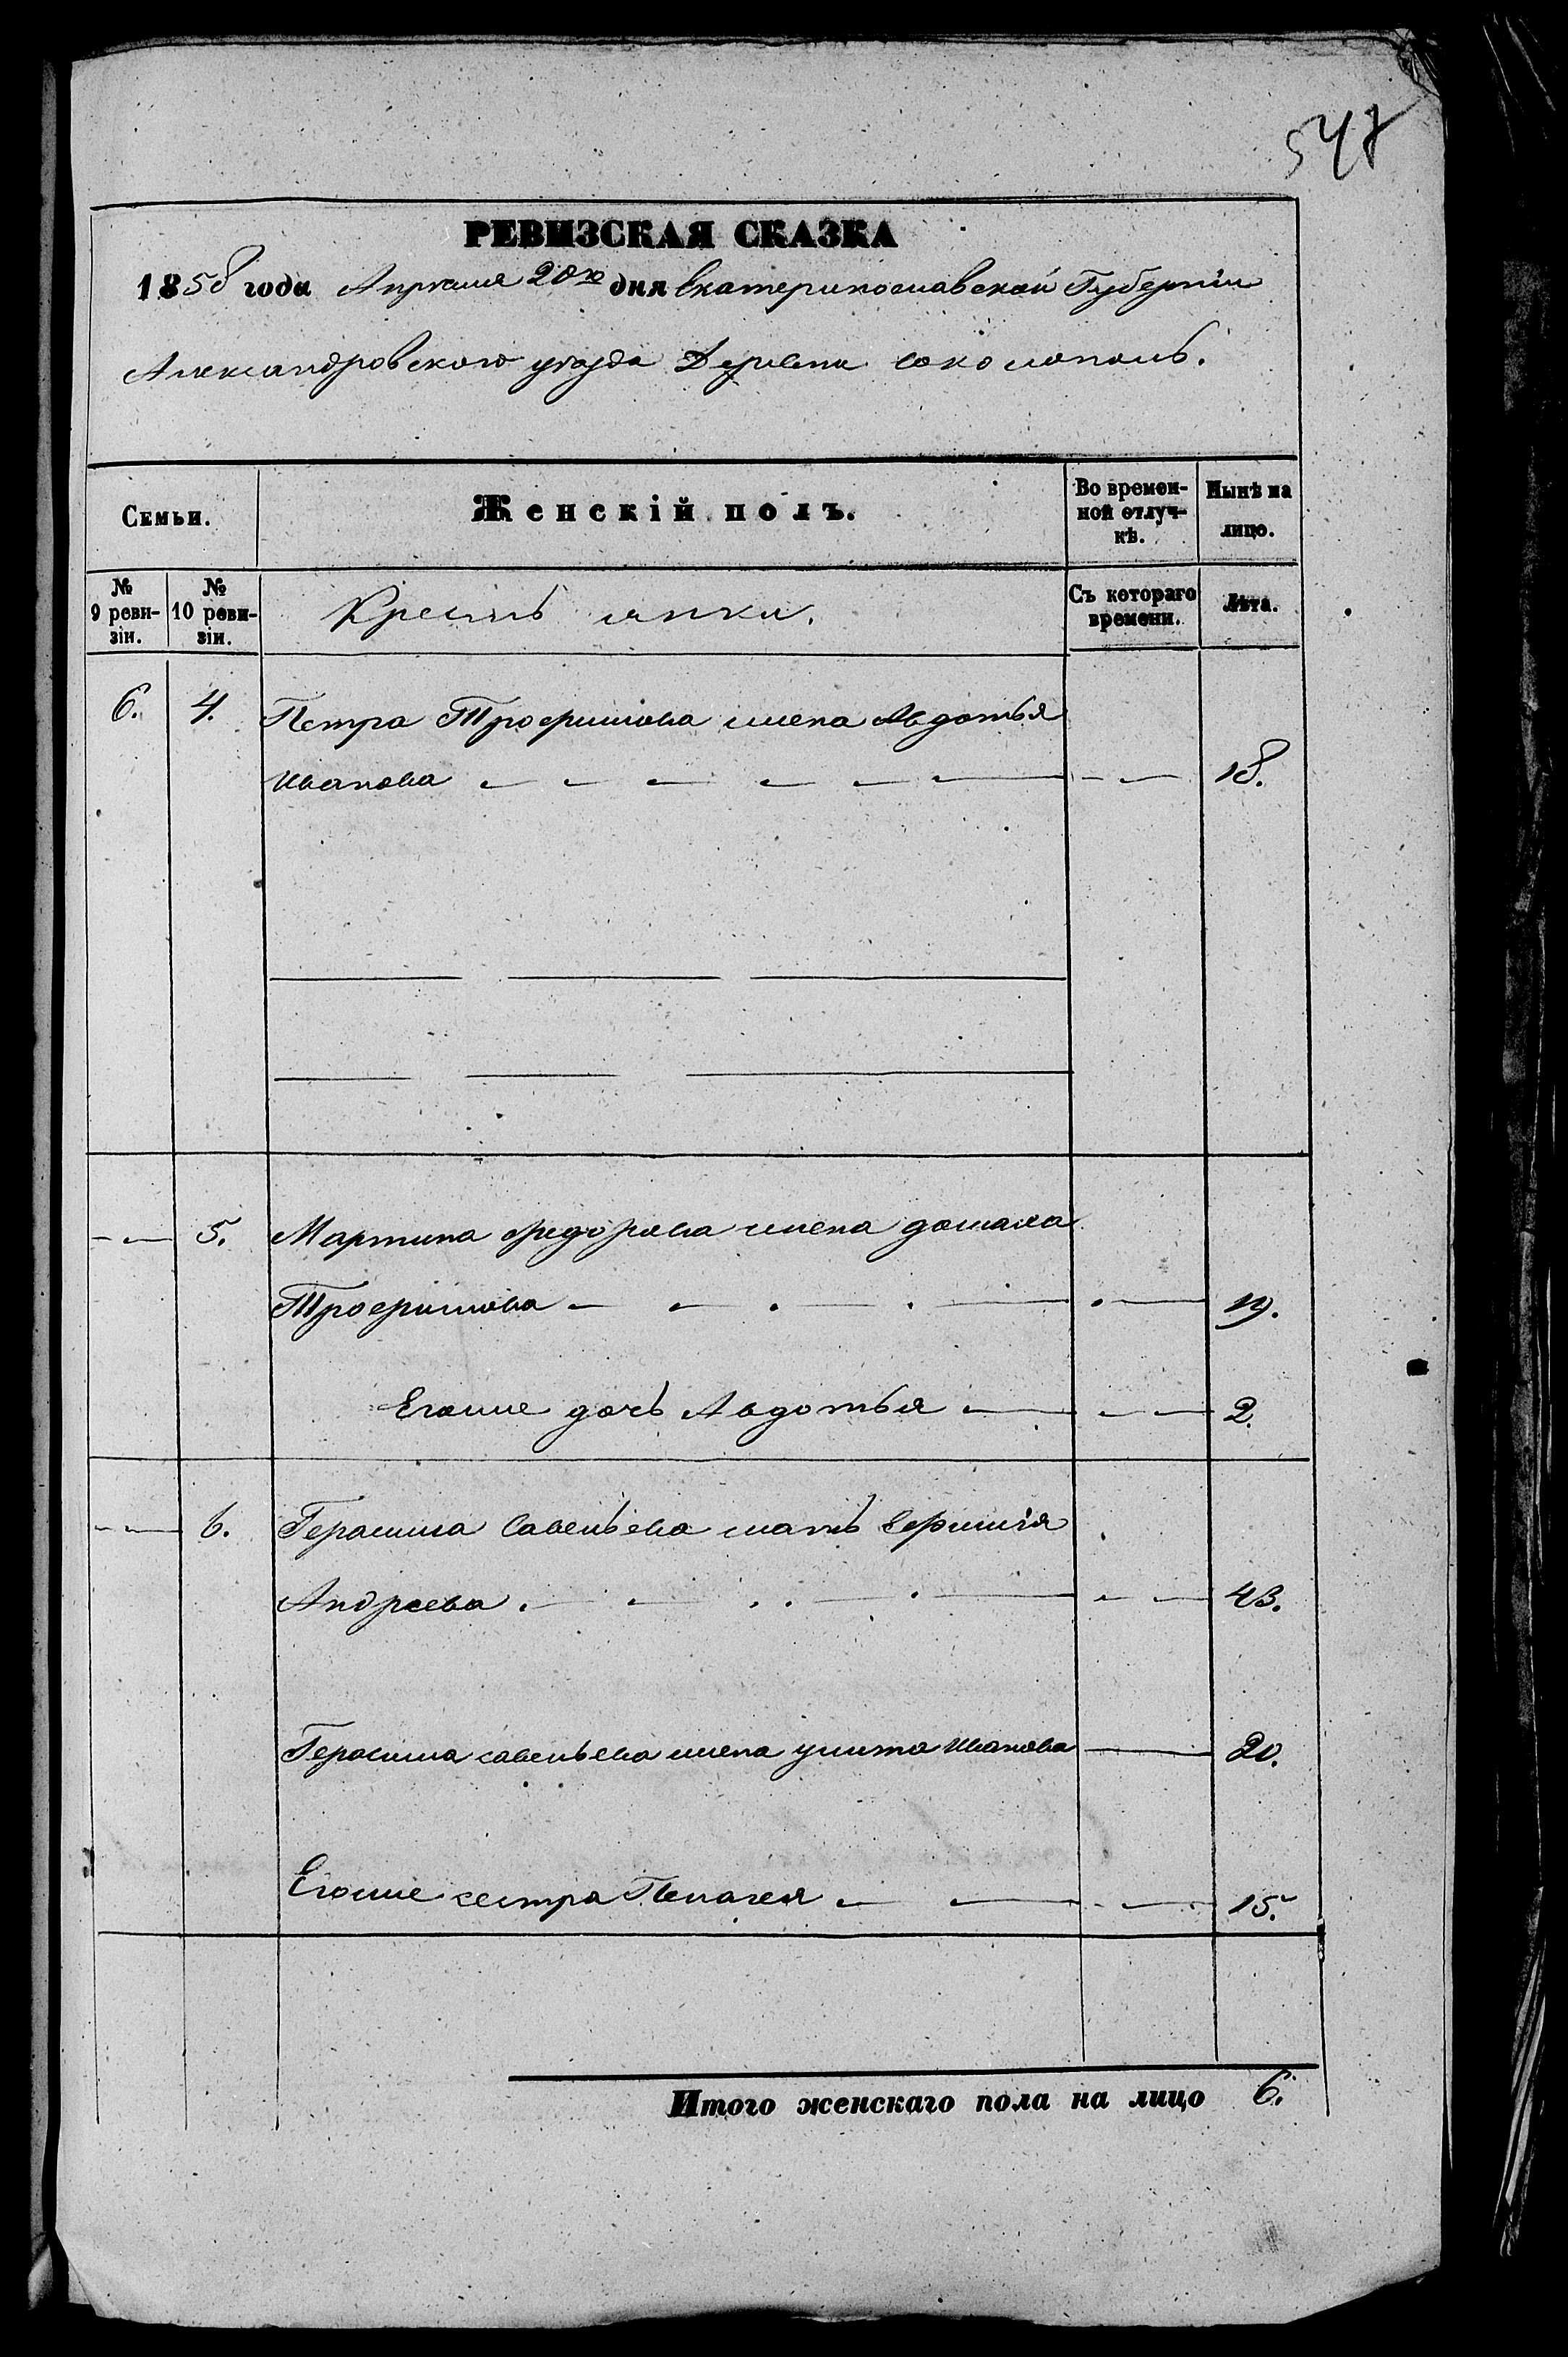 547
РЕВИЗСКАЯ СКАЗКА
1858 года Апреля 20го дня Екатеринославской Губернiи
Александровского уезда Деревни Соколополь.
Семьи.
Женскiй полъ.
Во времен-
ной отлуч-
кѣ.
Нынѣ на
лицо.
№
9 реви-
зiи.
№
10 реви-
зiи.
Крестьянки.
Съ котораго
времени.
Лѣта.
6. 4. Петра Трофимова жена Авдотья
Иванова 18.
5. Мартина Федорова жена домаха
Трофимова 19.
Егоже дочь Авдотья 2.
6. Герасима Савельева мать Ефимiя
Андреева 43.
Герасима савельева жена улита Иванова 20.
Егоже сестра Пелагея 15.
Итого женскаго пола на лицо 6.